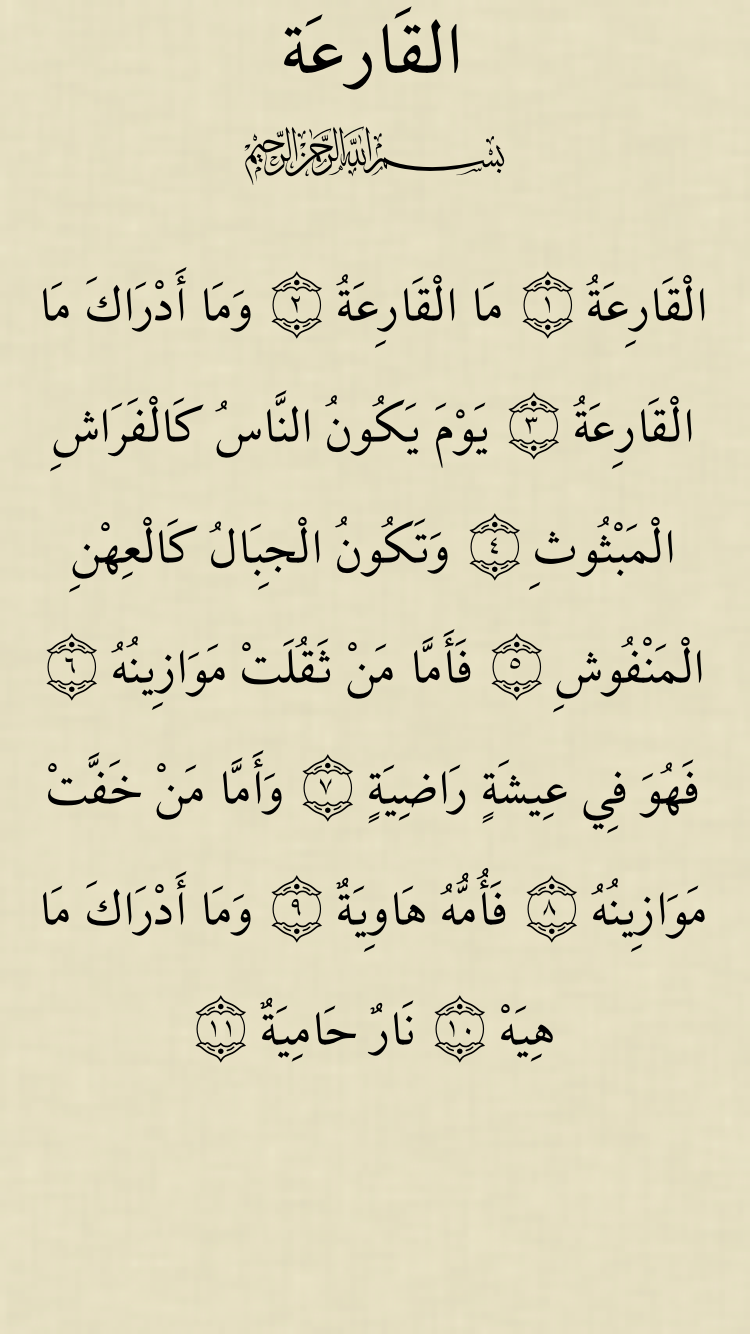 القَارعَة
بسم الله الرحمن الرحيم
الْقَارِعَةُ ١ مَا الْقَارِعَةُ ٢ وَمَا أَدْرَاكَ مَا
الْقَارِعَةُ ٣ يَوْمَ يَكُونُ النَّاسُ كَالْفَرَاشِ
الْمَبْثُوثِ ٤ وَتَكُونُ الْجِبَالُ كَالْعِهْنِ
الْمَنْفُوشِ ٥ فَأَمَّا مَنْ ثَقُلَتْ مَوَازِينُهُ ٦
فَهُوَ فِي عِيشَةٍ رَاضِيَةٍ ٧ وَأَمَّا مَنْ خَفَّتْ
مَوَازِينُهُ ٨ فَأُمُّهُ هَاوِيَةٌ ٩ وَمَا أَدْرَاكَ مَا
هِيَهْ ١٠ نَارٌ حَامِيَةٌ ١١